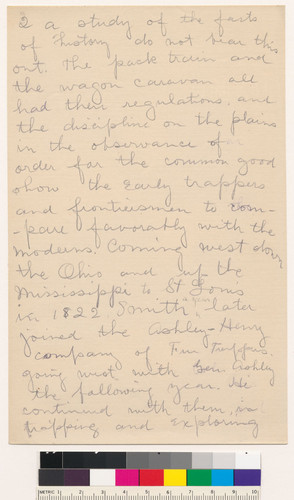 2 a study of the facts
of history do not bear this
out. The pack train and
the wagon caravan all
had their regulations, and
the discipline on the plains
in the observance of
order for the common good
show the early trappers
and frontiersmen to com-
-pare favorably with the
moderns. Coming west down
the Ohio and up the
Mississippi to St Louis
in 1822. Smith, later
joined the Ashley-Henry
company of Fur
going west with Gen. Ashley
the following year. He
continued with them, in
trapping and exploring
METRIC 1 2 3 4 5 6 7 8 9 10